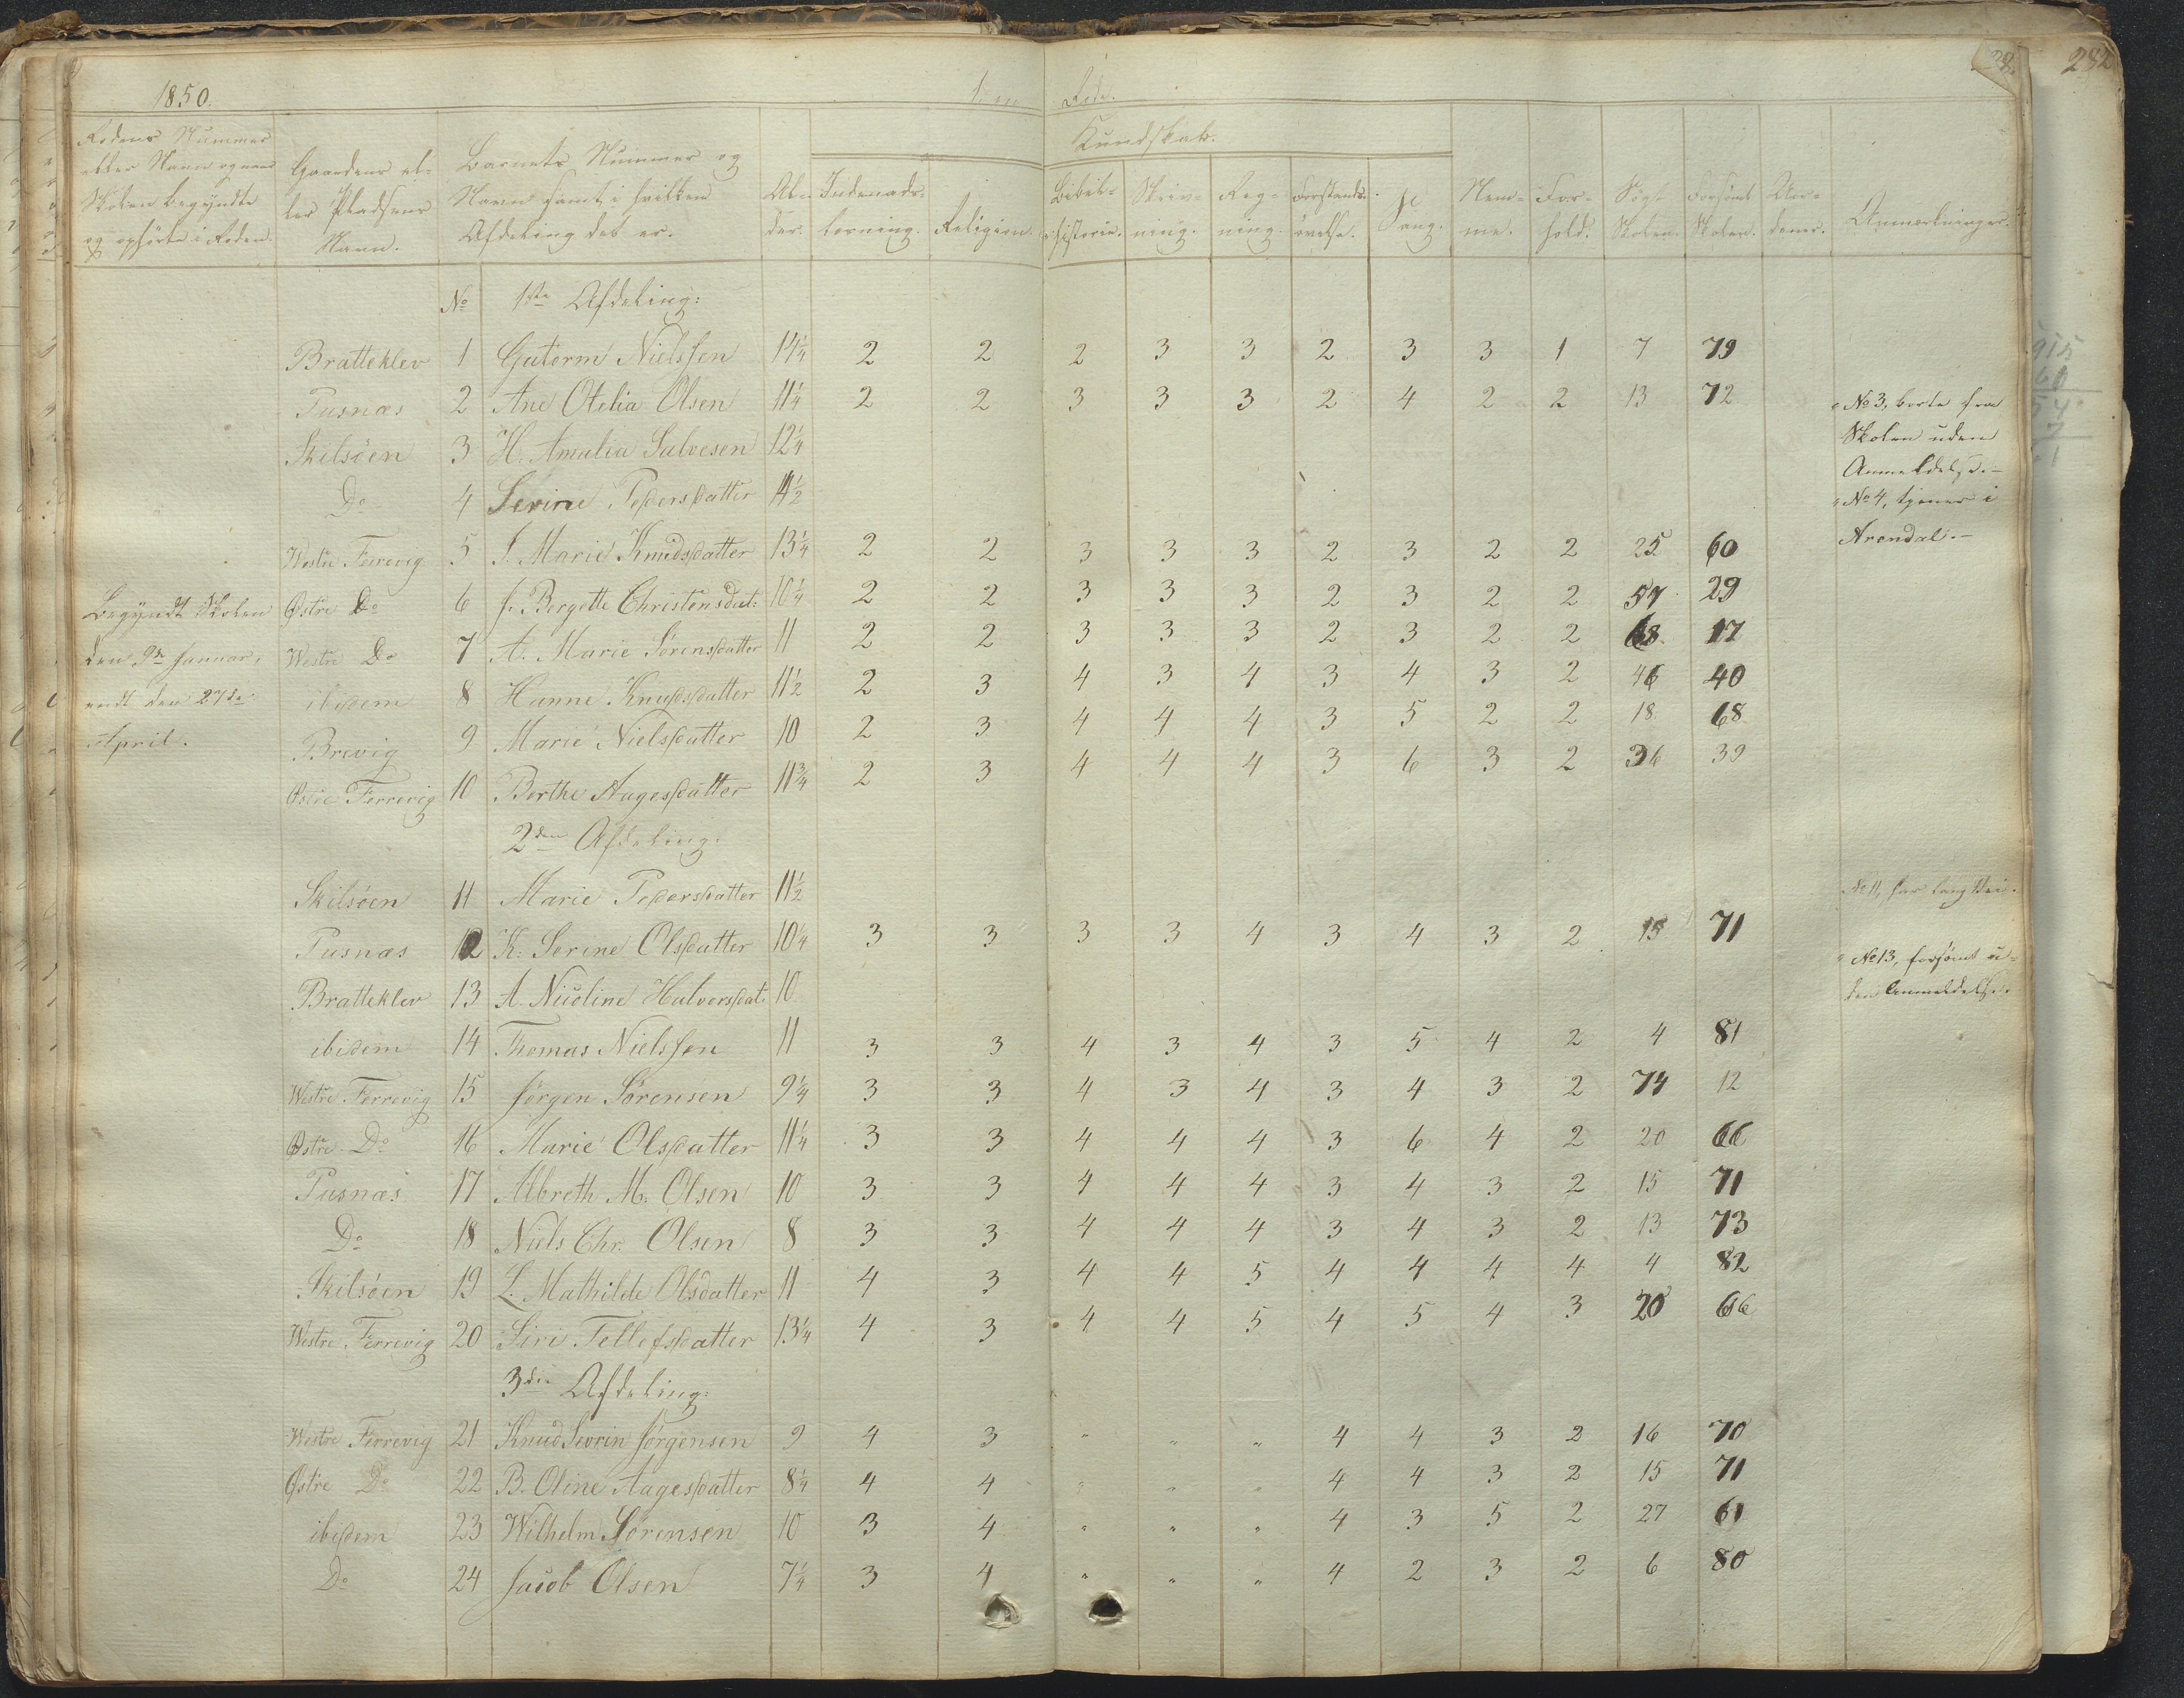 1850. Rode. 282
Rodens Nummer eller Navn og naar Skolen begyndte og ophørte i Roden.
Gaardens eller Pladsens Navn.
Barnets Nummer og Navn samt i hvilken Afdeling det er.
Alder.
Kundskab.
Indenadslæsning. Religion. Bibelhistorie. Skrivning. Regning. Forstandsøvelse. Sang.
Nemme. Forhold. Søgt Skolen. Forsømt Skolen. Anmærkninger.
No 1ste Afdeling:
Bratteklev 1 Gutorm Nielssen 14¼ 2 2 2 3 3 2 3 3 1 7 79
Pusnæs 2 Ane Otelia Olsen 11¼ 2 2 3 3 3 2 4 2 2 13 72
Skilsøen 3 H. Amalia Salvesen 12¼
Do 4 Serine Pedersdatter 14½
Westre Færevig 5 I. Marie Knudsdatter 13¼ 2 2 3 3 3 2 3 2 2 25 60
Østre Do 6 J. Bergette Christensdat: 10¼ 2 2 3 3 3 2 3 2 2 57 29
Westre Do 7 A. Marie Sørensdatter 11 2 2 3 3 3 2 3 2 2 68 17
ibidem 8 Hanne Knudsdatter 11½ 2 3 4 3 4 3 4 3 2 46 40
Brevig 9 Marie Nielsdatter 10 2 3 4 4 4 3 5 2 2 18 68
Østre Ferrevig 10 Berthe Aagesdatter 11¾ 2 3 4 4 4 3 6 3 2 36 39
Begyndt Skolen
den 9de Januar,
endt den 27de
April.
"No 3, borte fra
Skolen uden
Anmeldelse.-
"No 4, tjener i
Arendal.-
2den Afdeling:
Skilsøen 11 Marie Pedersdatter 11½
Pusnæs 12 K. Serine Olsdatter 10¼ 3 3 3 3 4 3 4 3 2 15 71
Bratteklev 13 A. Nicoline Halvorsdat: 10
ibidem 14 Thomas Nielssen 11 3 3 4 3 4 3 5 4 2 4 81
Westre Ferrevig 15 Jørgen Sørensen 9¼ 3 3 4 3 4 3 4 3 2 74 12
Østre Do 16 Marie Olsdatter 11¼ 3 3 4 4 4 3 6 4 2 20 66
Pusnæs 17 Albreth M. Olsen 10 3 3 4 4 4 3 4 3 2 15 71
Do 18 Niels Chr. Olsen 8 3 3 4 4 4 3 4 3 2 13 73
Skilsøen 19 L. Mathilde Olsdatter 11 4 3 4 4 5 4 4 4 4 4 82
Westre Ferrevig 20 Siri Tellefsdatter 13¼ 4 3 4 4 5 4 5 4 3 20 66
No 11, har lang Vei.
"No 13, forsømt u-
den Anmeldelse.
3die Afdeling:
Westre Ferrevig 21 Knud Sevrin Jørgensen 9 4 3 " " " 4 4 3 2 16 70
Østre Do 22 B. Oline Aagesdatter 8¼ 4 4 " " " 4 4 3 2 15 71
ibidem 23 Wilhelm Sørensen 10 3 4 " " " 4 3 5 2 27 61
Do 24 Jacob Olsen 7¼ 3 4 " " " 4 2 3 2 6 80